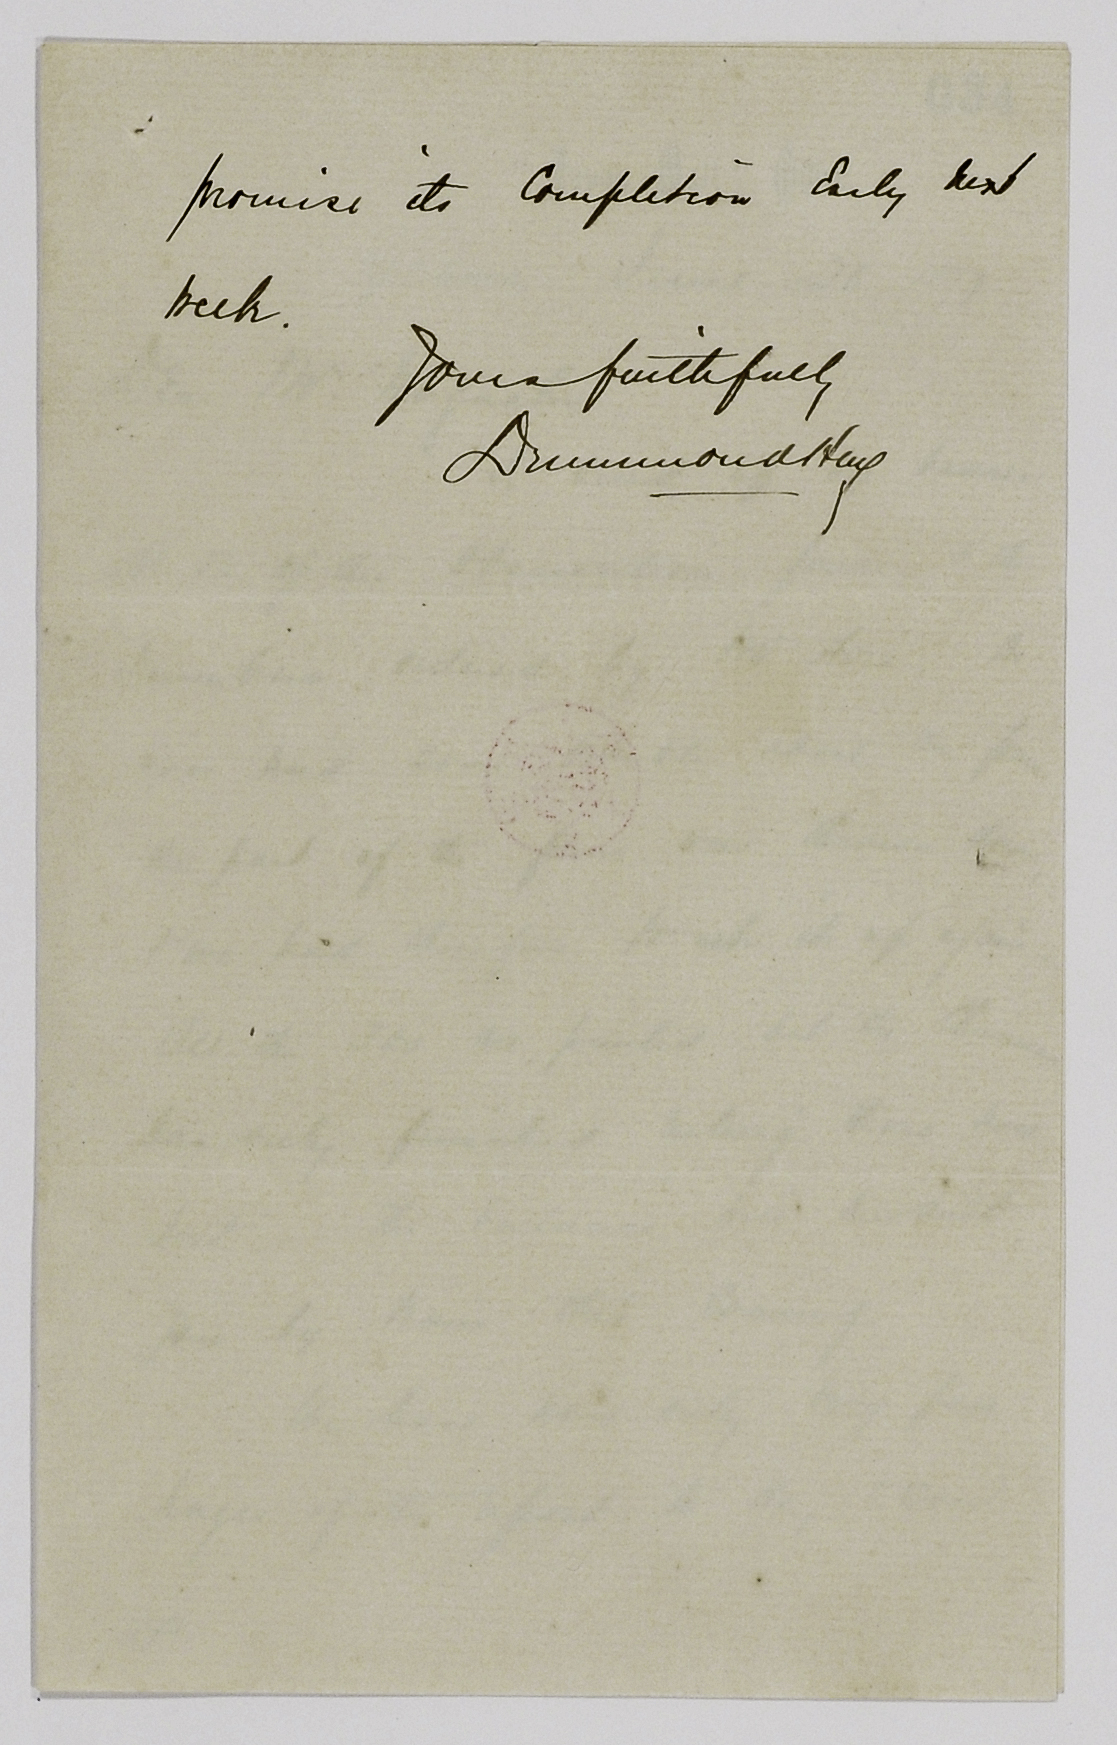 promise its Completion Early next
week.
Yours faithfully
Drummond Hay